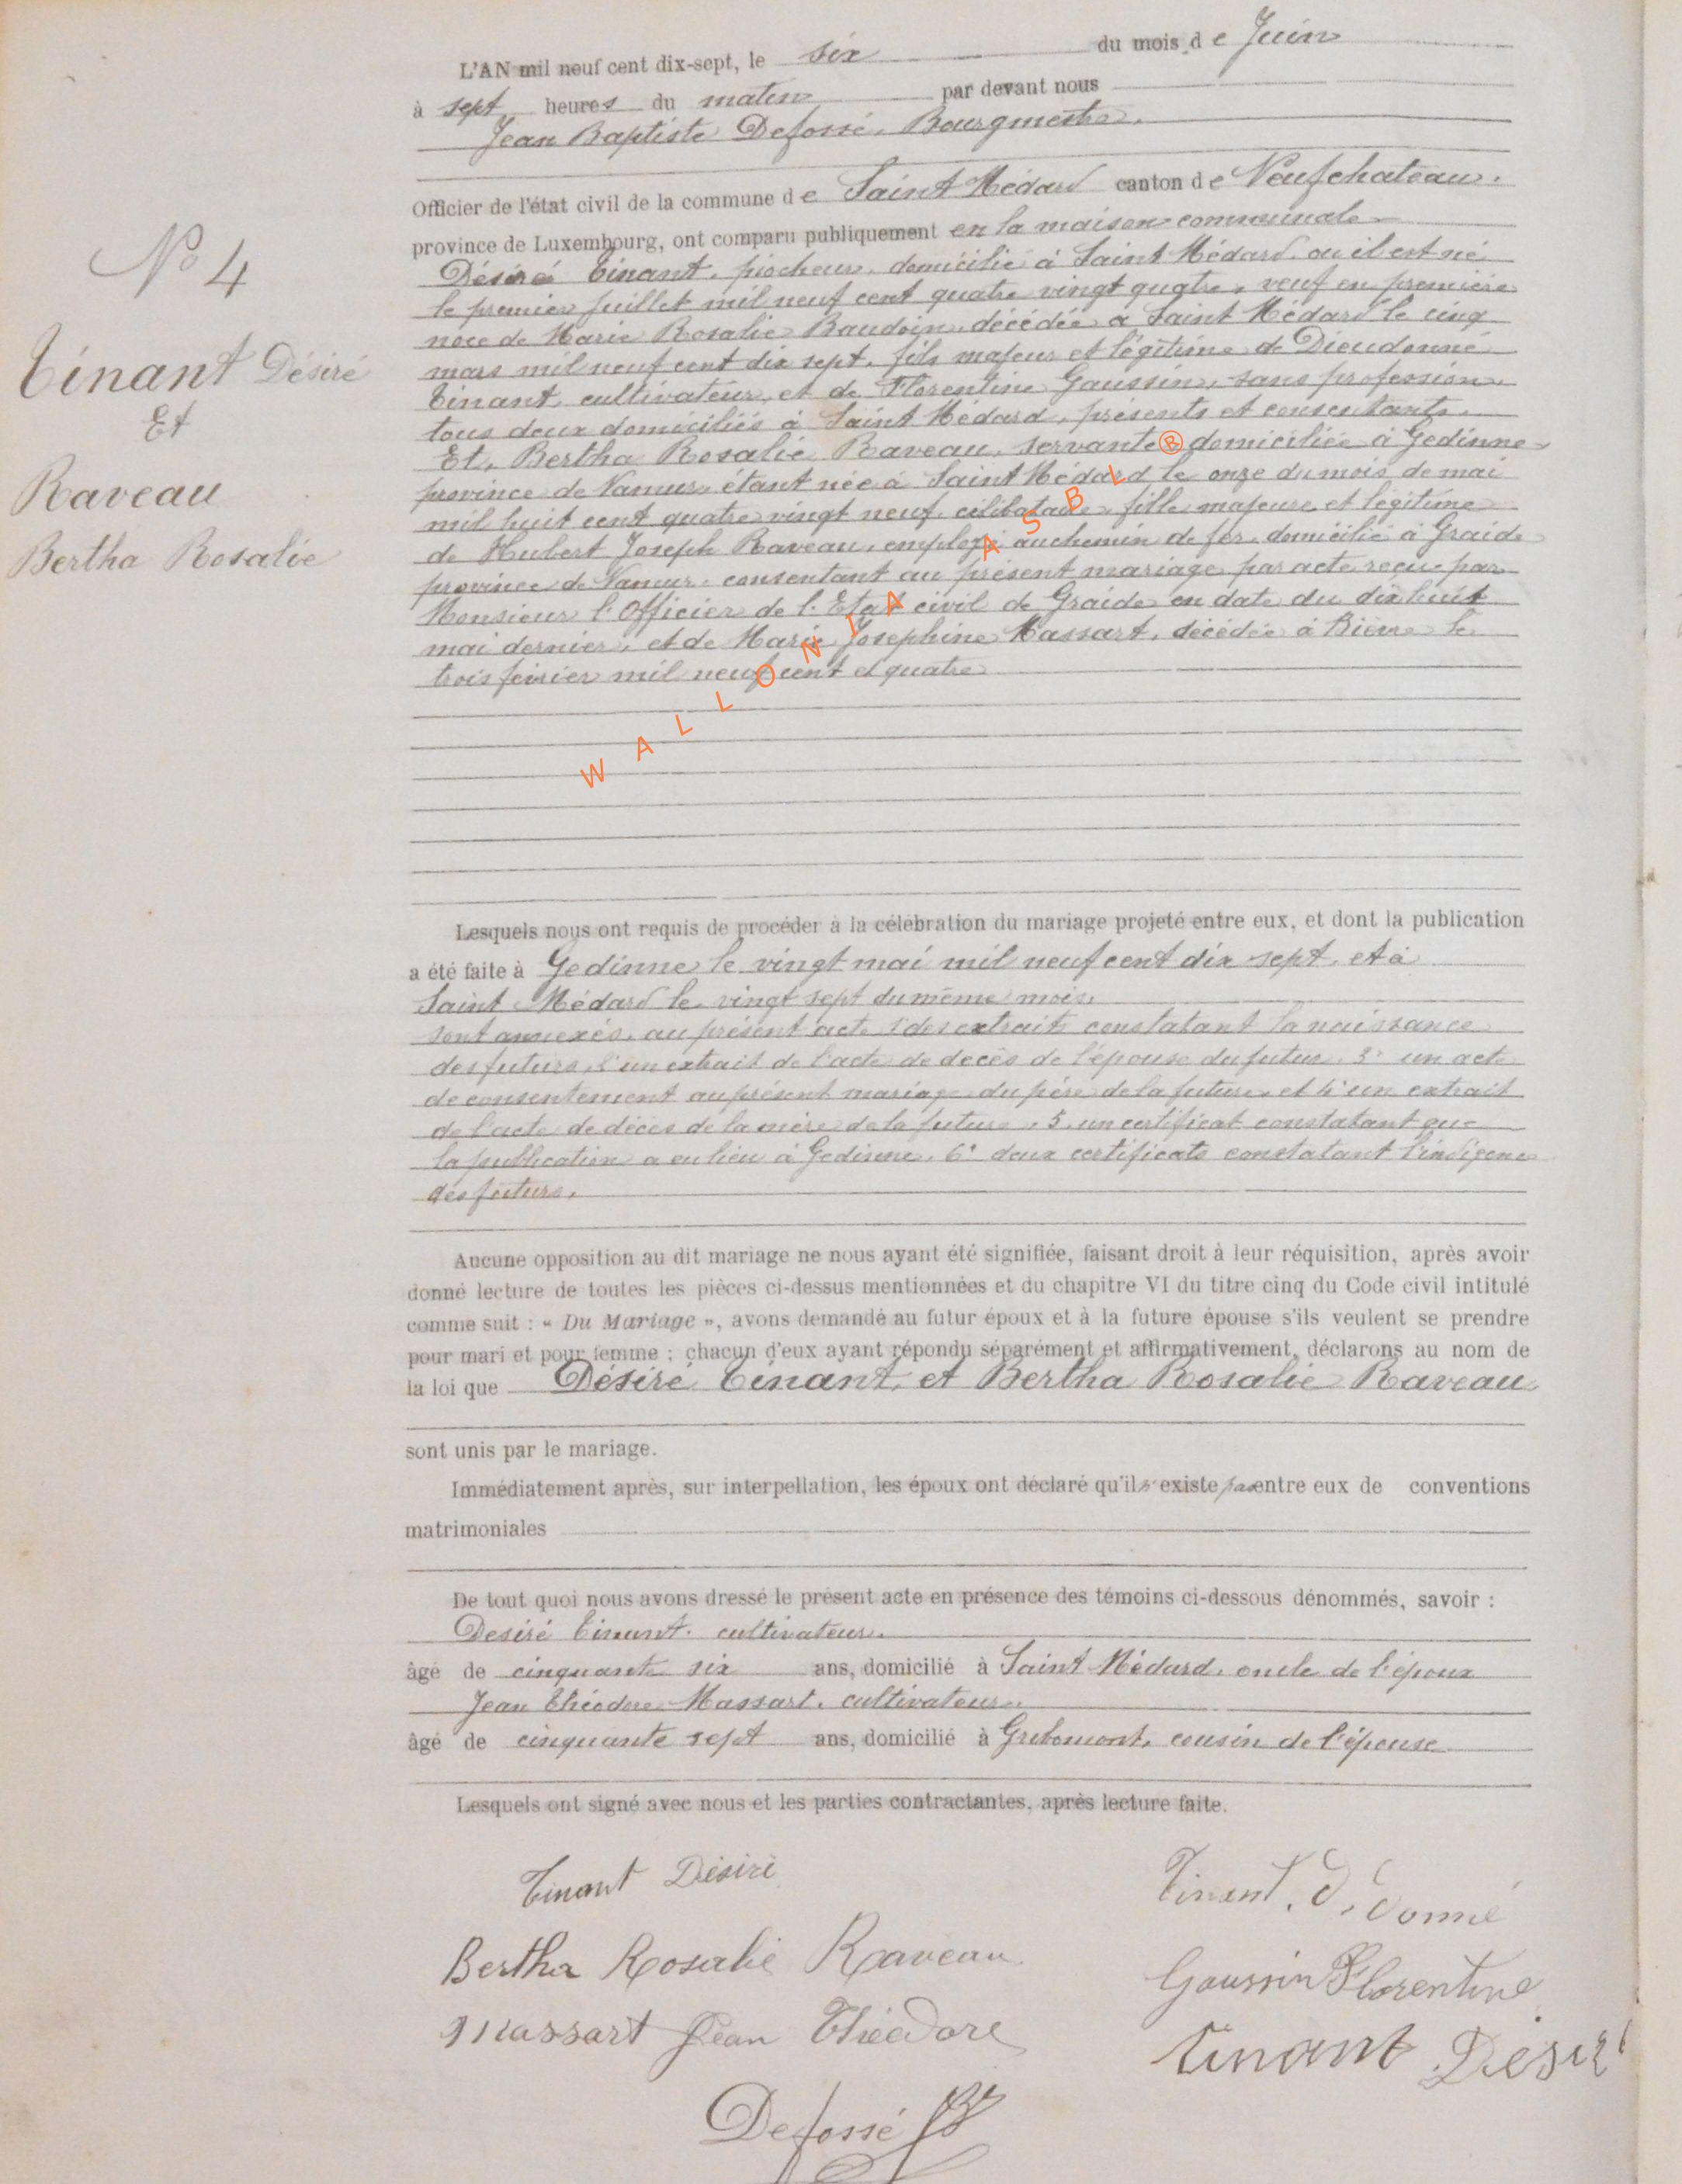 L'AN mil neuf cent dix-sept, le six du mois de Juin
à sept heures du matin par devant nous
Jean Baptiste Defossé, Bourgmestre,
Officier de l'état civil de la commune de Saint Médard canton de Neufchateau.
province de Luxembourg, ont comparu publiquement en la maison communale
Désiré Tinant, piocheur, domicilié à Saint Médard, ou il est né
le premier Juillet mil neuf cent quatre vingt quatre, veuf en première
noce de Marie Rosalie Baudoin, décédée à Saint Médard le cinq
mars mil neuf cent dix sept, fils majeur et légitime de Dieudonné
Tinant, cultivateur, et de Florentine Gaussin, sans profession,
tous deux domiciliés à Saint Médard, présents et consentants.
Et, Bertha Rosalie Raveau, servante domiciliée à Gedinne,
province de Namur, étant née à Saint Médard le onze du mois de mai
mil huit cent quatre vingt neuf, célibataire, fille majeure et légitime
de Hubert Joseph Raveau, employé au chemin de fer, domicilié à Graide
province de Namur, consentant au présent mariage par acte reçu par
Monsieur l'Officier de l'Etat civil de Graide en date du dix huit
mai dernier, et de Marie Josephine Massart, décédée à Bièvre le
trois février mil neuf cent et quatre
WALLONIA ASBL ®
N° 4
Tinant Désiré
Et
Raveau
Bertha Rosalie
Lesquels nous ont requis de procéder à la célébration du mariage projeté entre eux, et dont la publication
a été faite à Gedinne le vingt mai mil neuf cent dix sept, et à
Saint Médard le vingt sept du même mois,
sont annexés, au présent acte 1° des extraits constatant la naissance
des futurs, 2° un extrait de l'acte de decès de l'épouse du futur, 3° un acte
de consentement au présent mariage du père de la future, et 4° un extrait
de l'acte de décès de la mère de la future, 5. un certificat constatant que
la publication a eu lieu à Gedinne, 6° deux certificats constatant l'indigence
des futurs,
Aucune opposition au dit mariage ne nous ayant été signifiée, faisant droit à leur réquisition, après avoir
donné lecture de toutes les pièces ci-dessus mentionnées et du chapitre VI du titre cinq du Code civil intitulé
comme suit : « Du Mariage », avons demandé au futur époux et à la future épouse s'ils veulent se prendre
pour mari et pour femme ; chacun d'eux ayant répondu séparément et affirmativement, déclarons au nom de
la loi que Désiré Tinant, et Bertha Rosalie Raveau
sont unis par le mariage.
Immédiatement après, sur interpellation, les époux ont déclaré qu'il n'existe pas entre eux de conventions
matrimoniales
De tout quoi nous avons dressé le présent acte en présence des témoins ci-dessous dénommés, savoir :
Desiré Tinant. cultivateur.
âgé de cinquante six ans, domicilié à Saint Médard, oncle de l'époux
Jean Théodore Massart. cultivateur.
âgé de cinquante sept ans, domicilié à Gribomont, cousin de l'épouse
Lesquels ont signé avec nous et les parties contractantes, après lecture faite.
Tinant Désiré
Tinant. D.donné
Bertha Rosalie Raveau
Gaussin Florentine
Massart Jean Théodore
Tinant Désiré
Defossé JB